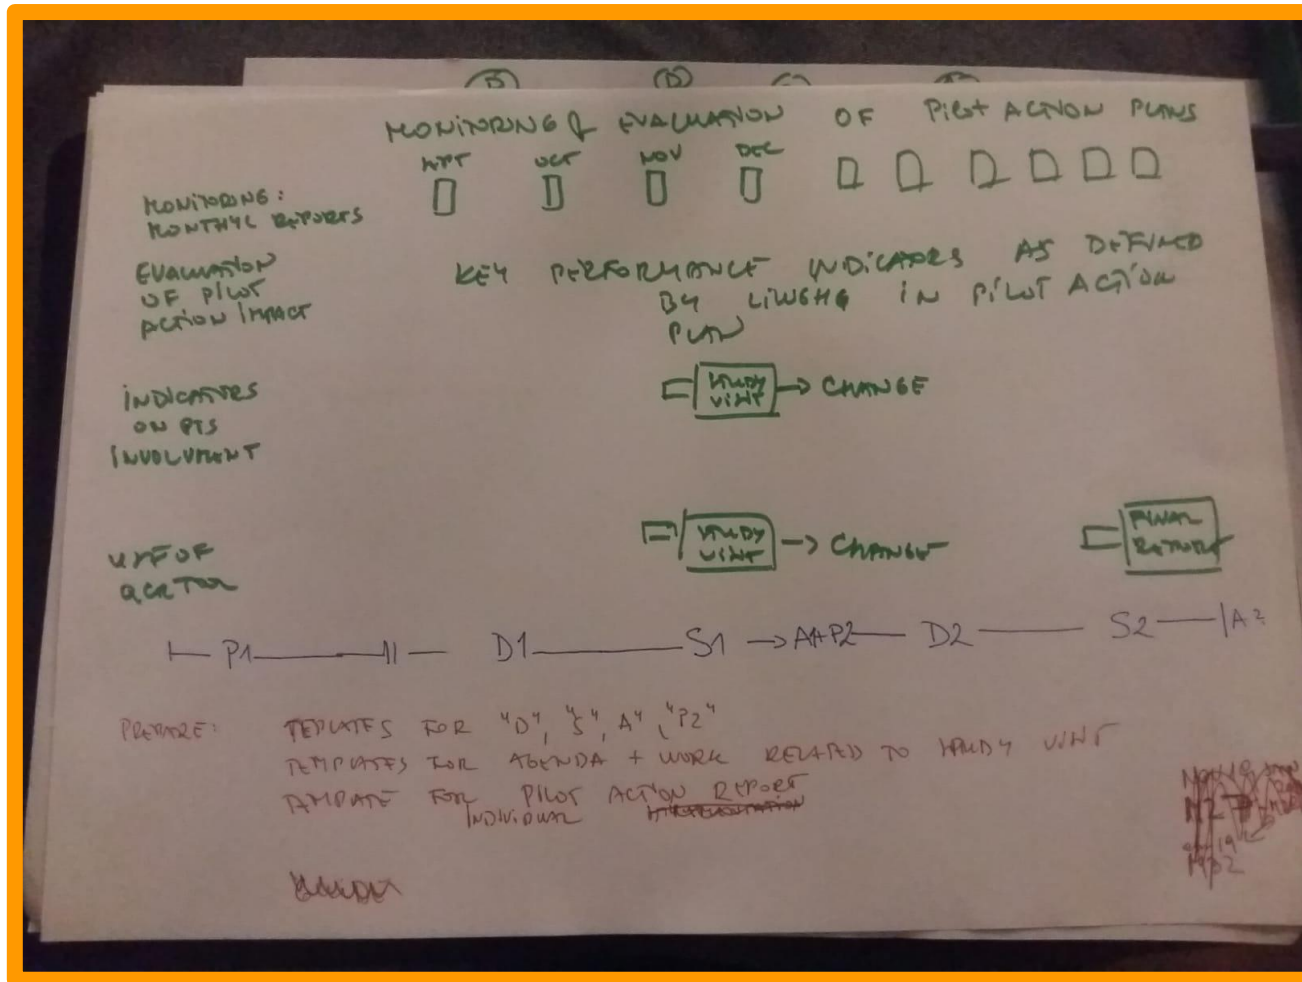 B D
MONITORING & EVALUATION OF PILOT ACTION PLANS
OCT NOV DEC
MONITORING:
MONTHYL REPORTS
EVALUATION
OF PILOT
ACTION IMPACT
KEY PERFORMANCE INDICATORS AS DEFINED
BY IN PILOT ACTION
PLAN
INDICATORS
ON PTS
INVOLVMENT
STUDY
VISIT → CHANGE
USE OF
QCR TOOL
STUDY
VISIT → CHANGE
FINAL
REPORT
P1 D1 S1 → A1+P2 D2 S2 A2
PREPARE: TEPLATES FOR "D", "S", A", "P2"
TEMPLATES FOR AGENDA + WORK RELATED TO STUDY VISIT
TAMPLATE FOR PILOT ACTION REPORT
INDIVIDUAL